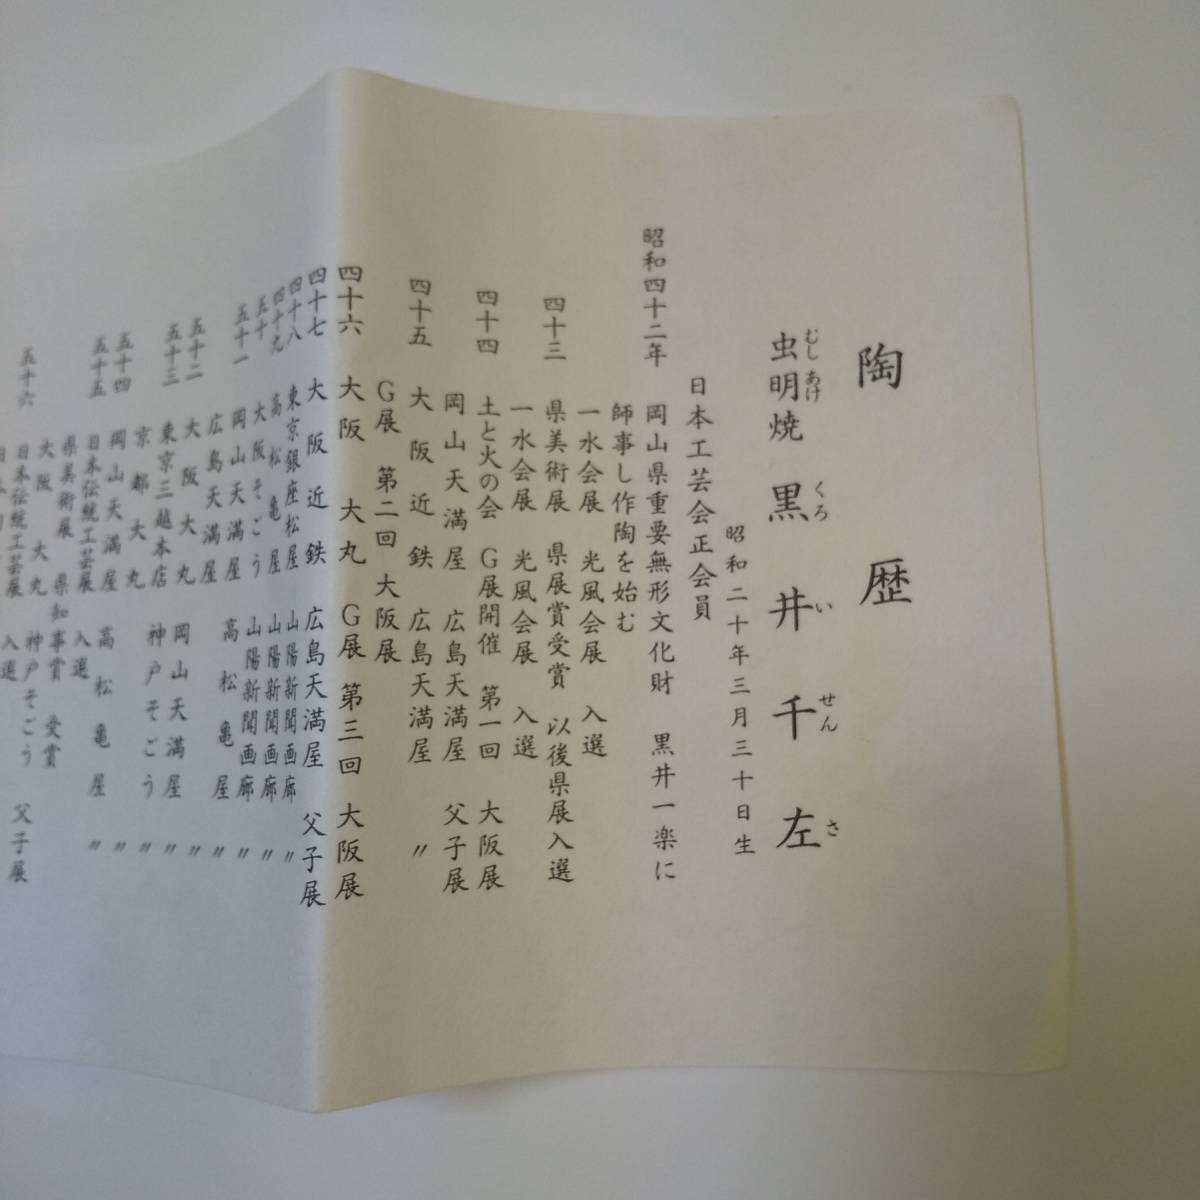 陶歴
虫明焼 黒井千左
むしあけ くろ い せん さ
昭和二十年三月三十日生
日本工芸会正会員
昭和四十二年 岡山県重要無形文化財 黒井一楽に
師事し作陶を始む
一水会展 光風会展 入選
四十三 県美術展 県展賞受賞 以後県展入選
一水会展 光風会展 入選
四十四 土と火の会 G展開催 第一回 大阪展
岡山天満屋 広島天満屋 父子展
四十五 大阪近鉄 広島天満屋 〃
G展 第二回 大阪展
四十六 大阪大丸 G展 第三回 大阪展
四十七 大阪近鉄 広島天満屋 父子展
四十八 東京銀座松屋 山陽新聞画廊 〃
四十九 高松亀屋 山陽新聞画廊 〃
五十 大阪そごう 山陽新聞画廊 〃
五十一 岡山天満屋 高松亀屋 〃
広島天満屋
五十二 大阪大丸 岡山天満屋 〃
五十三 東京三越本店 神戸そごう 〃
京都大丸
五十四 岡山天満屋 高松亀屋 〃
五十五 日本伝統工芸展 入選
県美術展 県知事賞 受賞
大阪大丸 神戸そごう 父子展
五十六 日本伝統工芸展 入選